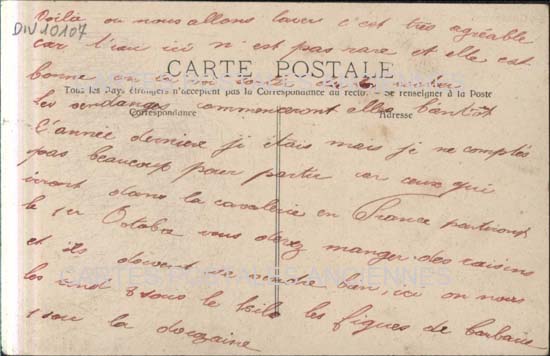 DIV10107
Voilà ou nous allons laver c'est très agréable
car l'eau ici n'est pas rare et elle est
bonne on la
CARTE POSTALE
Tous les Pays étrangers n'acceptent pas la Correspondance au recto. - Se renseigner à la Poste
les vendanges commenceront elles bientôt
Correspondance
Adresse
l'année dernière j'étais mais je ne comptes
pas beaucoup pour partir car ceux qui
iront dans la cavalerie en France partiront
le 1er Octobre vous devez manger des raisins
et ils doivent se vendre bien, ici on nous
CARTES POSTALES ANCIENNES
les vend 8 sous le kilo les figues de barbarie
1 sou la douzaine